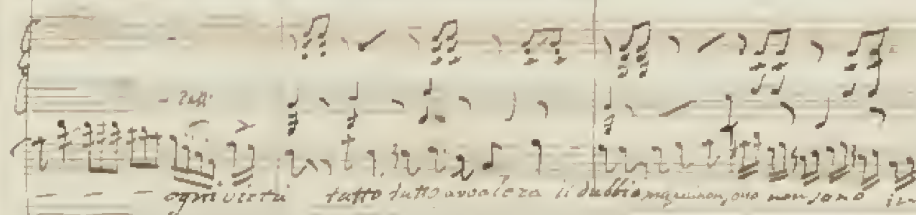 ogni virtù tutto tutto avvalora il dubbio non sono non sono